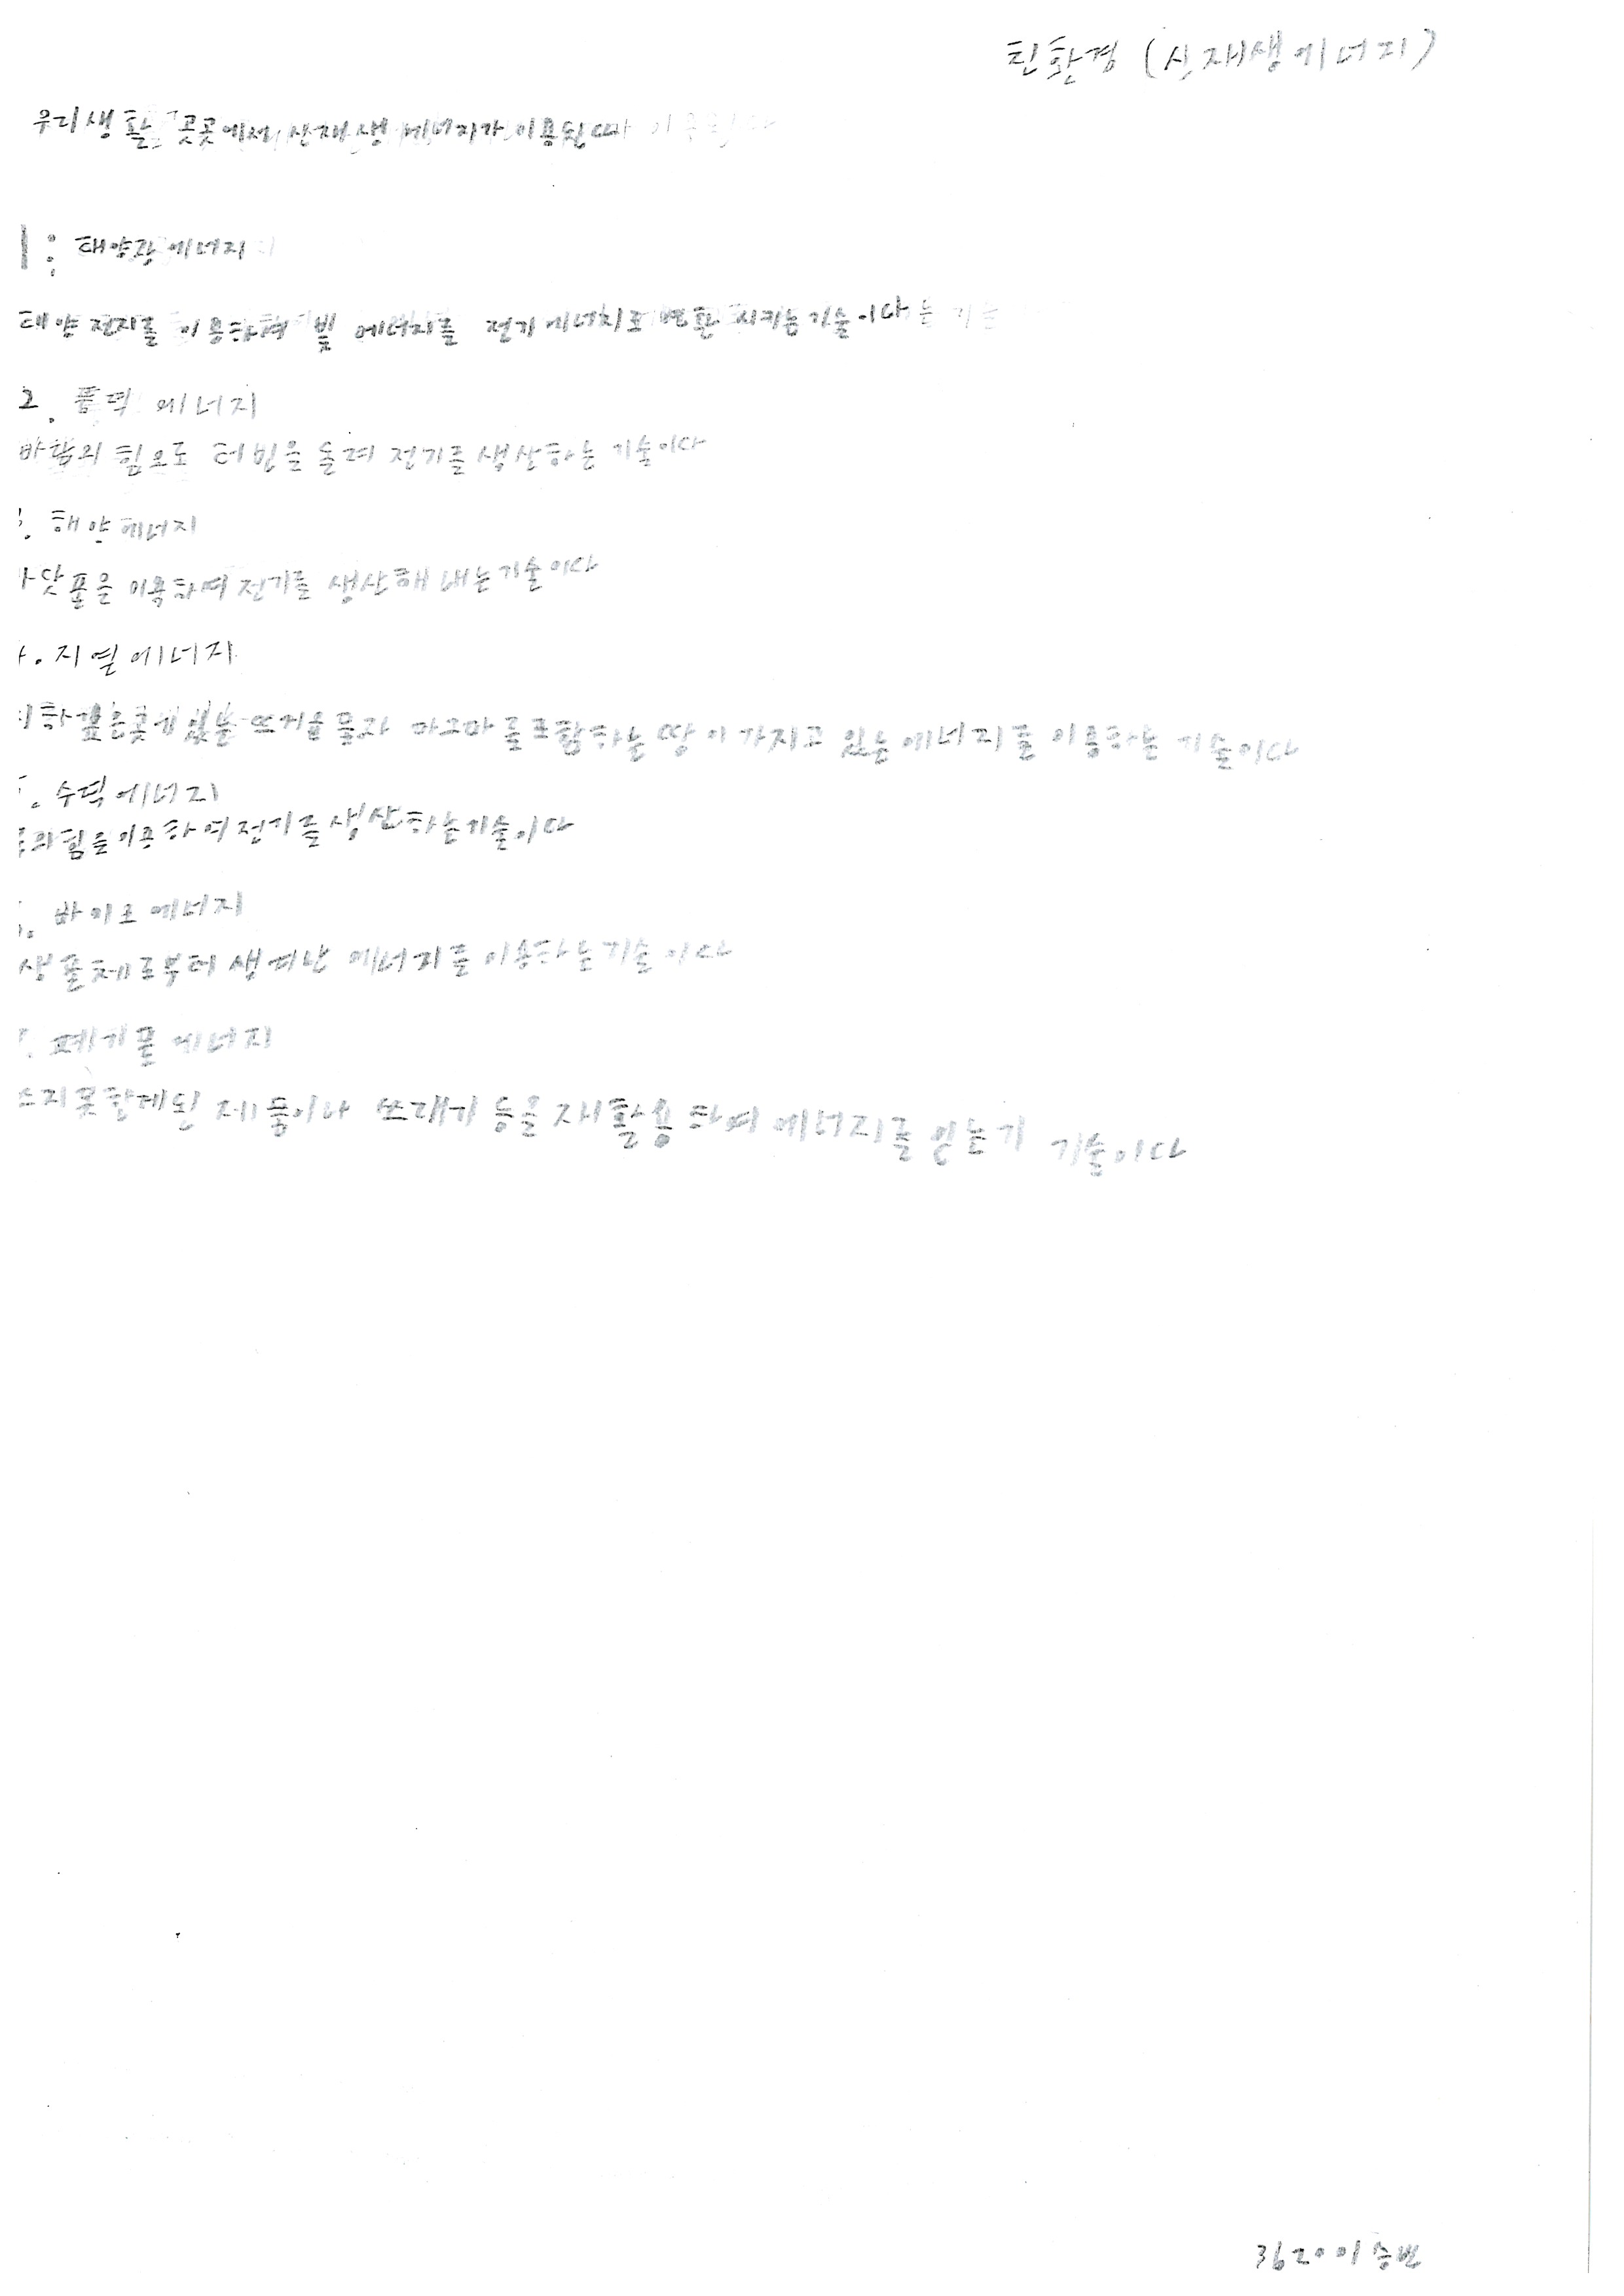 친환경 (신재생에너지)
우리생활 곳곳에서 신재생 에너지가 이용된다
1. 태양광 에너지
태양 전지를 이용하여 빛 에너지를 전기 에너지로 변환 시키는 기술이다
2. 풍력 에너지
바람의 힘으로 터빈을 돌려 전기를 생산하는 기술이다
해양에너지
닷물을 이용하여 전기를 생산해 내는 기술이다
지열에너지
하깊은곳에있는 뜨거운 물과 마그마를 포함하는 땅이 가지고 있는 에너지를 이용하는 기술이다
수력에너지
의힘을이용하여전기를생산하는기술이다
바이오 에너지
생물체로부터 생겨난 에너지를 이용하는 기술 이다
폐기물 에너지
쓰지못할게된 제품이나 쓰래기 등을 재활용 하여 에너지를 얻는기 기술이다
3620 이승